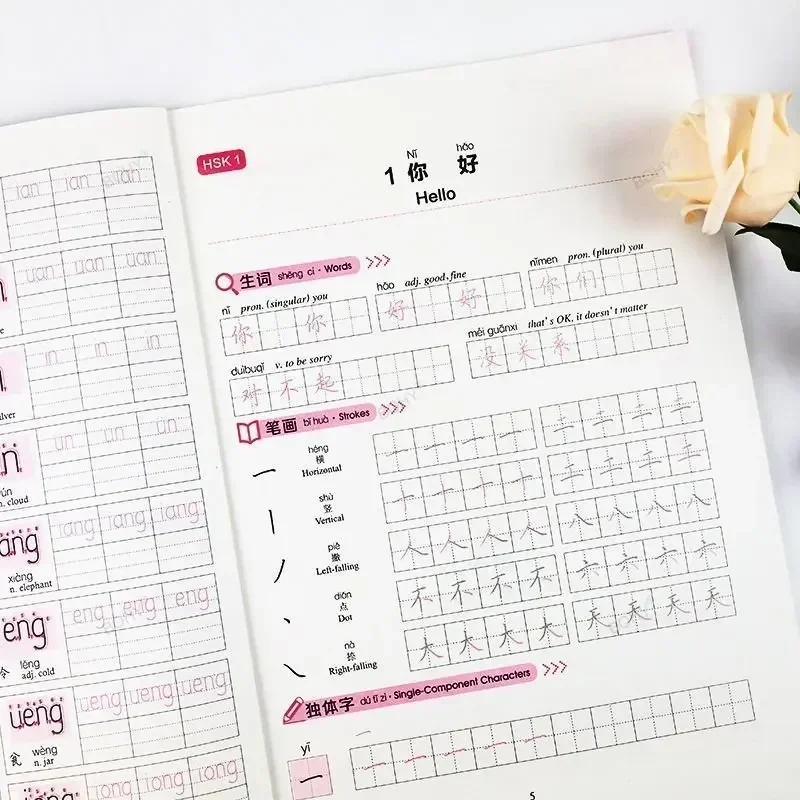 ian ian ian
uan
uan uan uan
in in in
silver
un un un
n. cloud
iang iang iang
xiàng
n. elephant
eng
eng eng eng
lěng
adj. cold
ueng
ueng ueng ueng
wèng
n. jar
iong iong iong
HSK 1
Nǐ hǎo
1 你 好
Hello
生词 shēng cí · Words
nǐ pron. (singular) you
你 你
hǎo adj. good, fine
好 好
nǐmen pron. (plural) you
你 们
duìbuqǐ v. to be sorry
对 不 起
méi guānxi that's OK, it doesn't matter
没 关 系
笔画 bǐ huà · Strokes
héng
横
Horizontal
一 一 一 一 二 二 二 二
shù
竖
Vertical
十 十 十 十 工 工 工 工
piě
撇
Left-falling
人 人 人 人 八 八 八 八
diǎn
点
Dot
不 不 不 不 六 六 六 六
nà
捺
Right-falling
大 大 大 大 天 天 天 天
独体字 dú tǐ zì · Single-Component Characters
yī
一
一
一 一 一 一 一
5